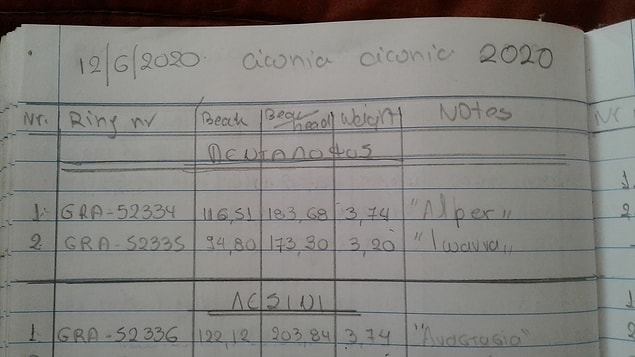 12/6/2020 ciconia ciconia 2020
Nr. Ring nr Beak Beak/head Weight Notes
ΠΕΝΤΑΛΟΦΟΣ
1. GRA-52334 116,51 183,68 3,74 "Alper"
2 GRA-52335 94,80 173,30 3,20 "Ιωαννα"
ΛΕΣΙΝΙ
1. GRA-52336 122,12 203,84 3,74 "Αναστασία"
Nr
1
2
1
2